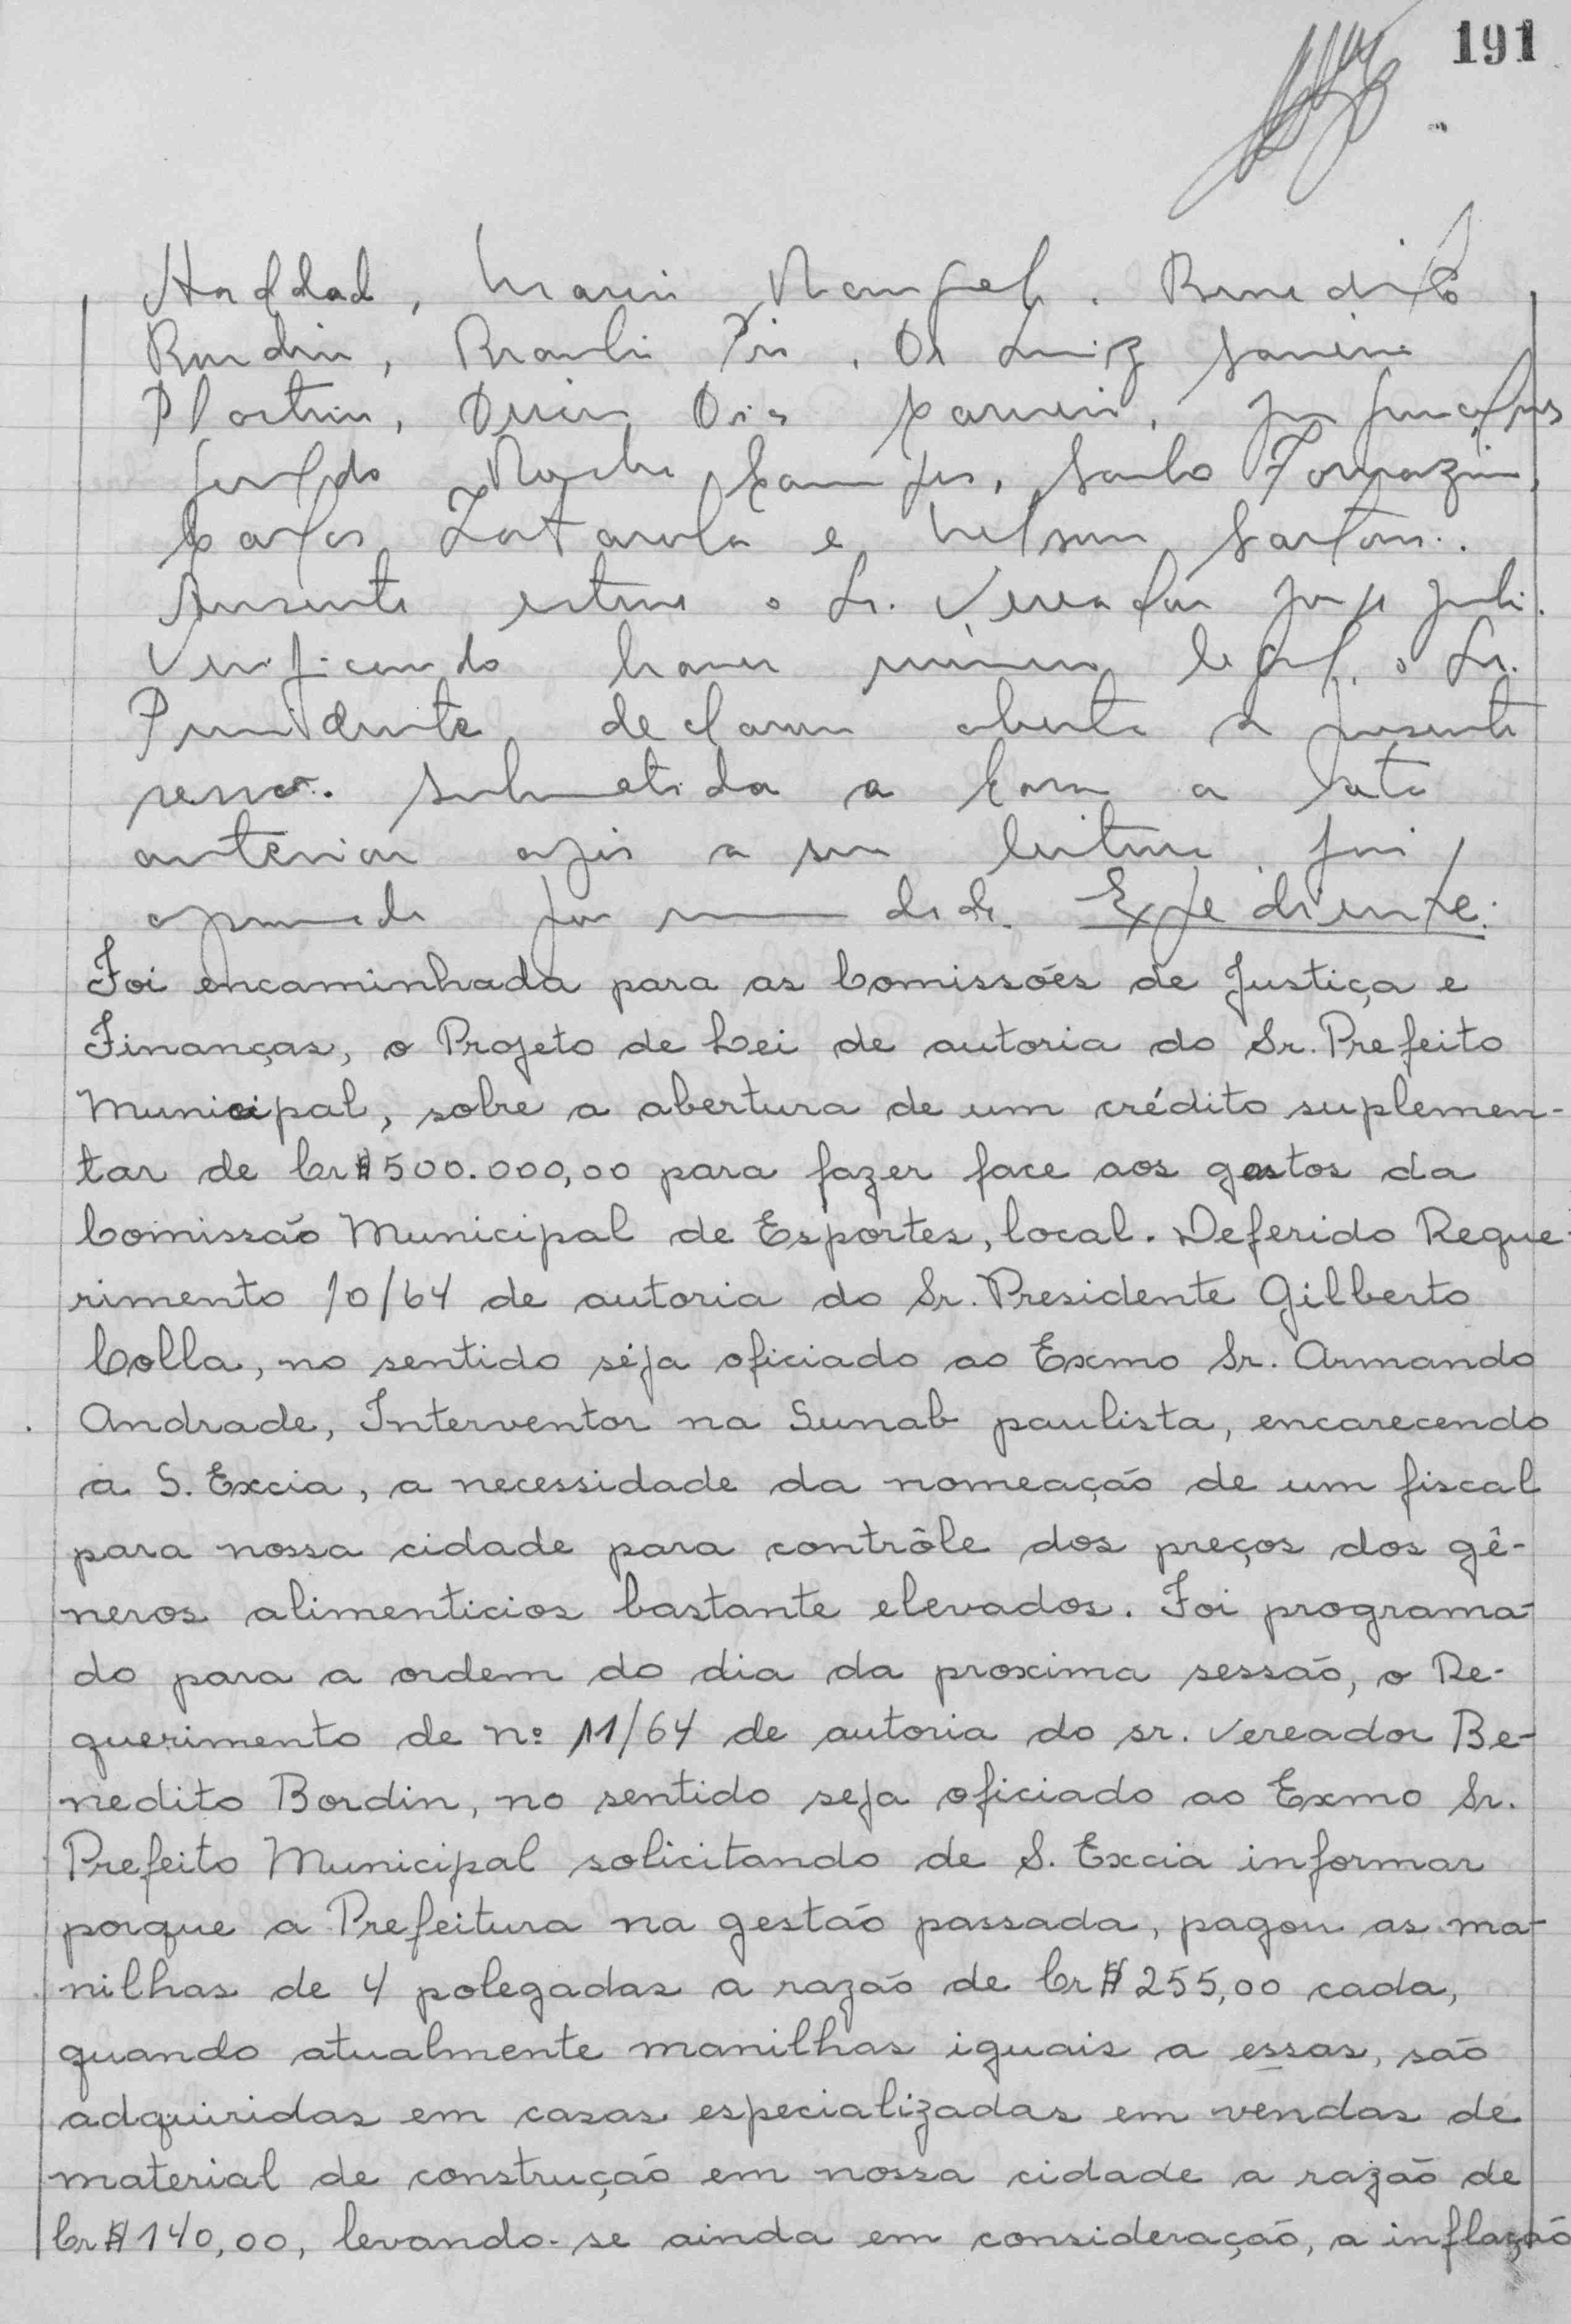 191
Haddad, Mario Rangel, Benedito
Bordin, Braulio Pio, Dr Luiz
Dias, José
Geraldo Rocha Campos, Saulo Fornazin,
Carlos Zattarola e Nelson Sartori.
Ausente esteve o Sr. Vereador José Julio.
Verificando haver número legal, o Sr.
Presidente declarou aberta a presente
sessão. Submetida a Casa a Ata
anterior após a sua leitura, foi
aprovada por unanimidade. Expediente:
Foi encaminhada para as Comissões de Justiça e
Finanças, o Projeto de Lei de autoria do Sr. Prefeito
Municipal, sobre a abertura de um crédito suplemen-
tar de Cr$ 500.000,00 para fazer face aos gastos da
Comissão Municipal de Esportes, local. Deferido Reque-
rimento 10/64 de autoria do Sr. Presidente Gilberto
Colla, no sentido seja oficiado ao Exmo Sr. Armando
Andrade, Interventor na Sunab paulista, encarecendo
a S. Excia, a necessidade da nomeação de um fiscal
para nossa cidade para contrôle dos preços dos gê-
neros alimenticios bastante elevados. Foi programa-
do para a ordem do dia da proxima sessão, o Re-
querimento de nº 11/64 de autoria do sr. vereador Be-
nedito Bordin, no sentido seja oficiado ao Exmo Sr.
Prefeito Municipal solicitando de S. Excia informar
porque a Prefeitura na gestão passada, pagou as ma-
nilhas de 4 polegadas a razão de Cr$ 255,00 cada,
quando atualmente manilhas iguais a essas, são
adquiridas em casas especializadas em vendas de
material de construção em nossa cidade a razão de
Cr$ 140,00, levando-se ainda em consideração, a inflação